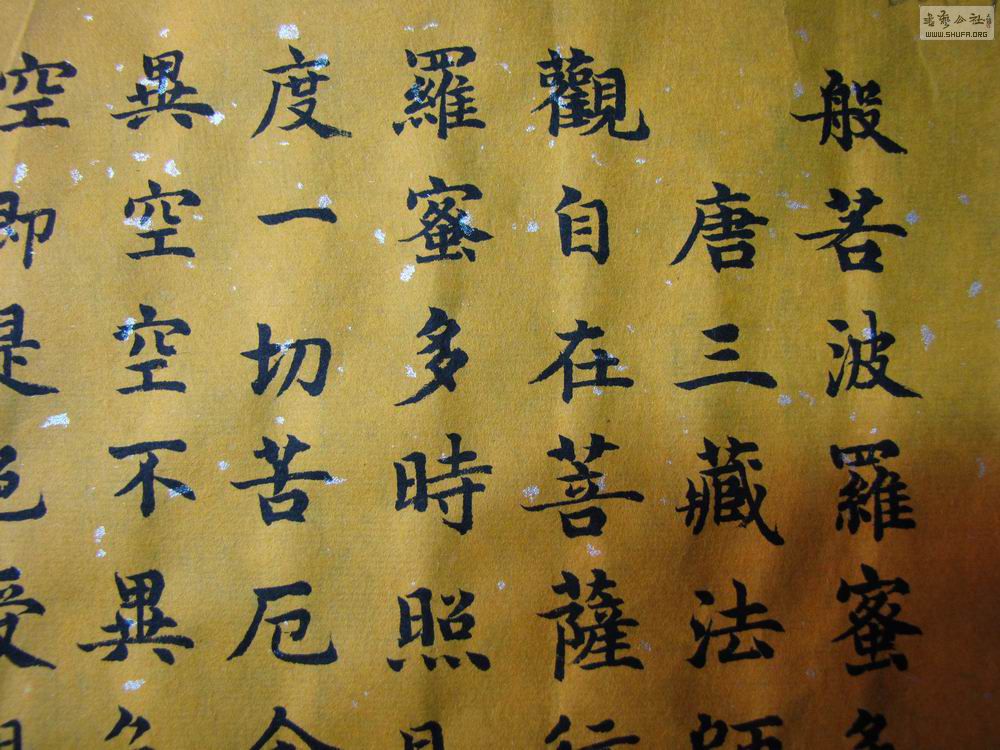 般若波羅蜜多
唐三藏法師
觀自在菩薩行
羅蜜多時照見
度一切苦厄舍
異空空不異色
空即是色受想
書藝公社
WWW.SHUFA.ORG